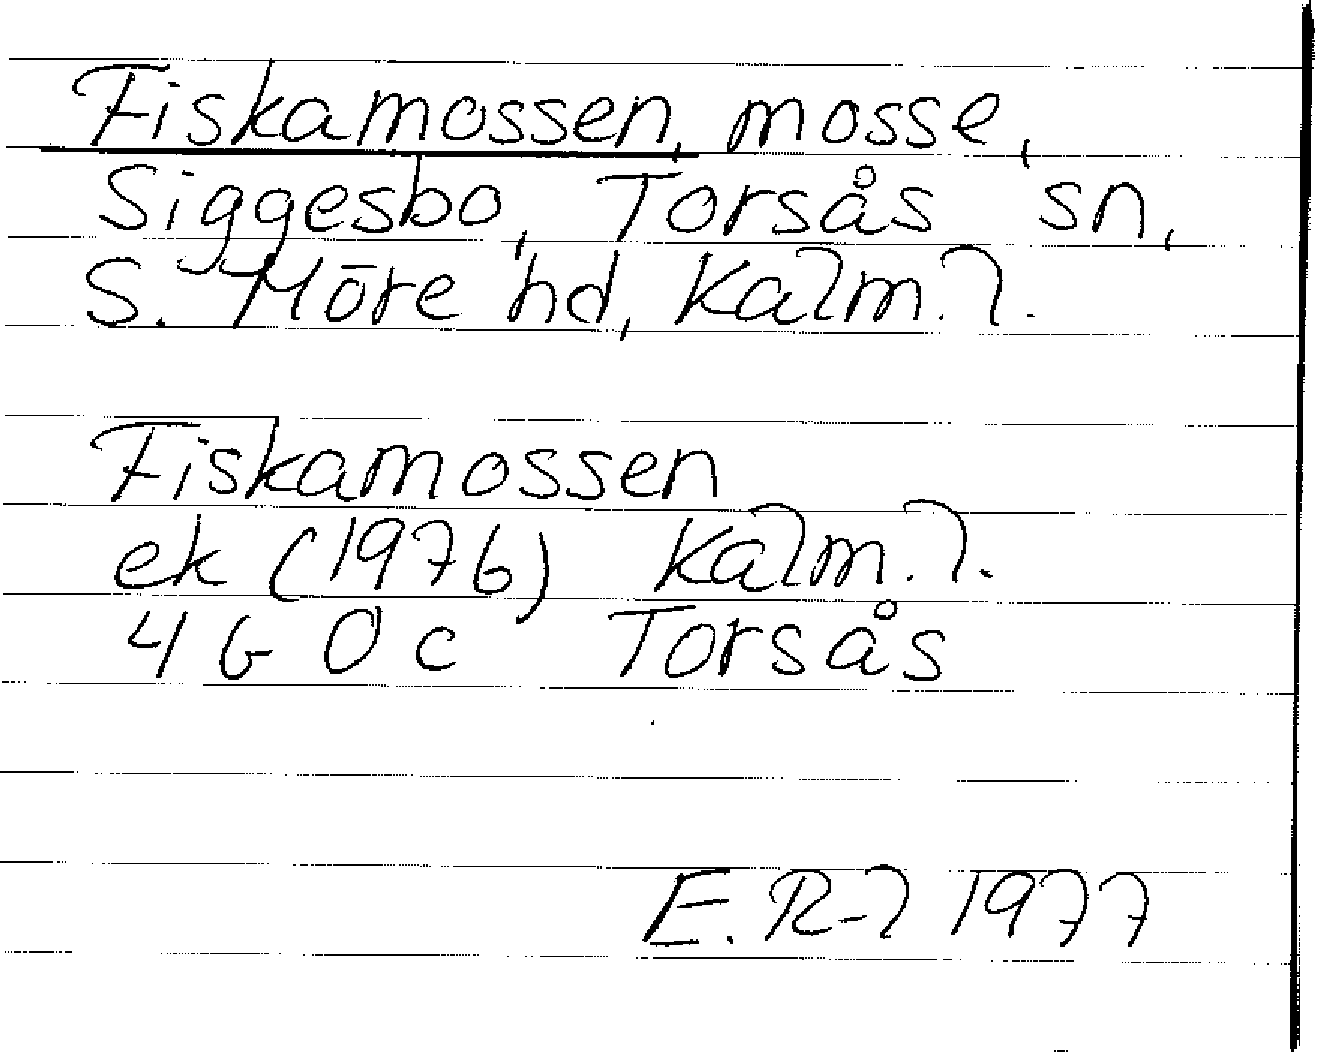 Fiskamossen, mosse,
Siggesbo, Torsås sn,
S. Möre hd, Kalm. l.
Fiskamossen
ek (1976) Kalm. l.
4 G 0 c Torsås
E. R-l 1977